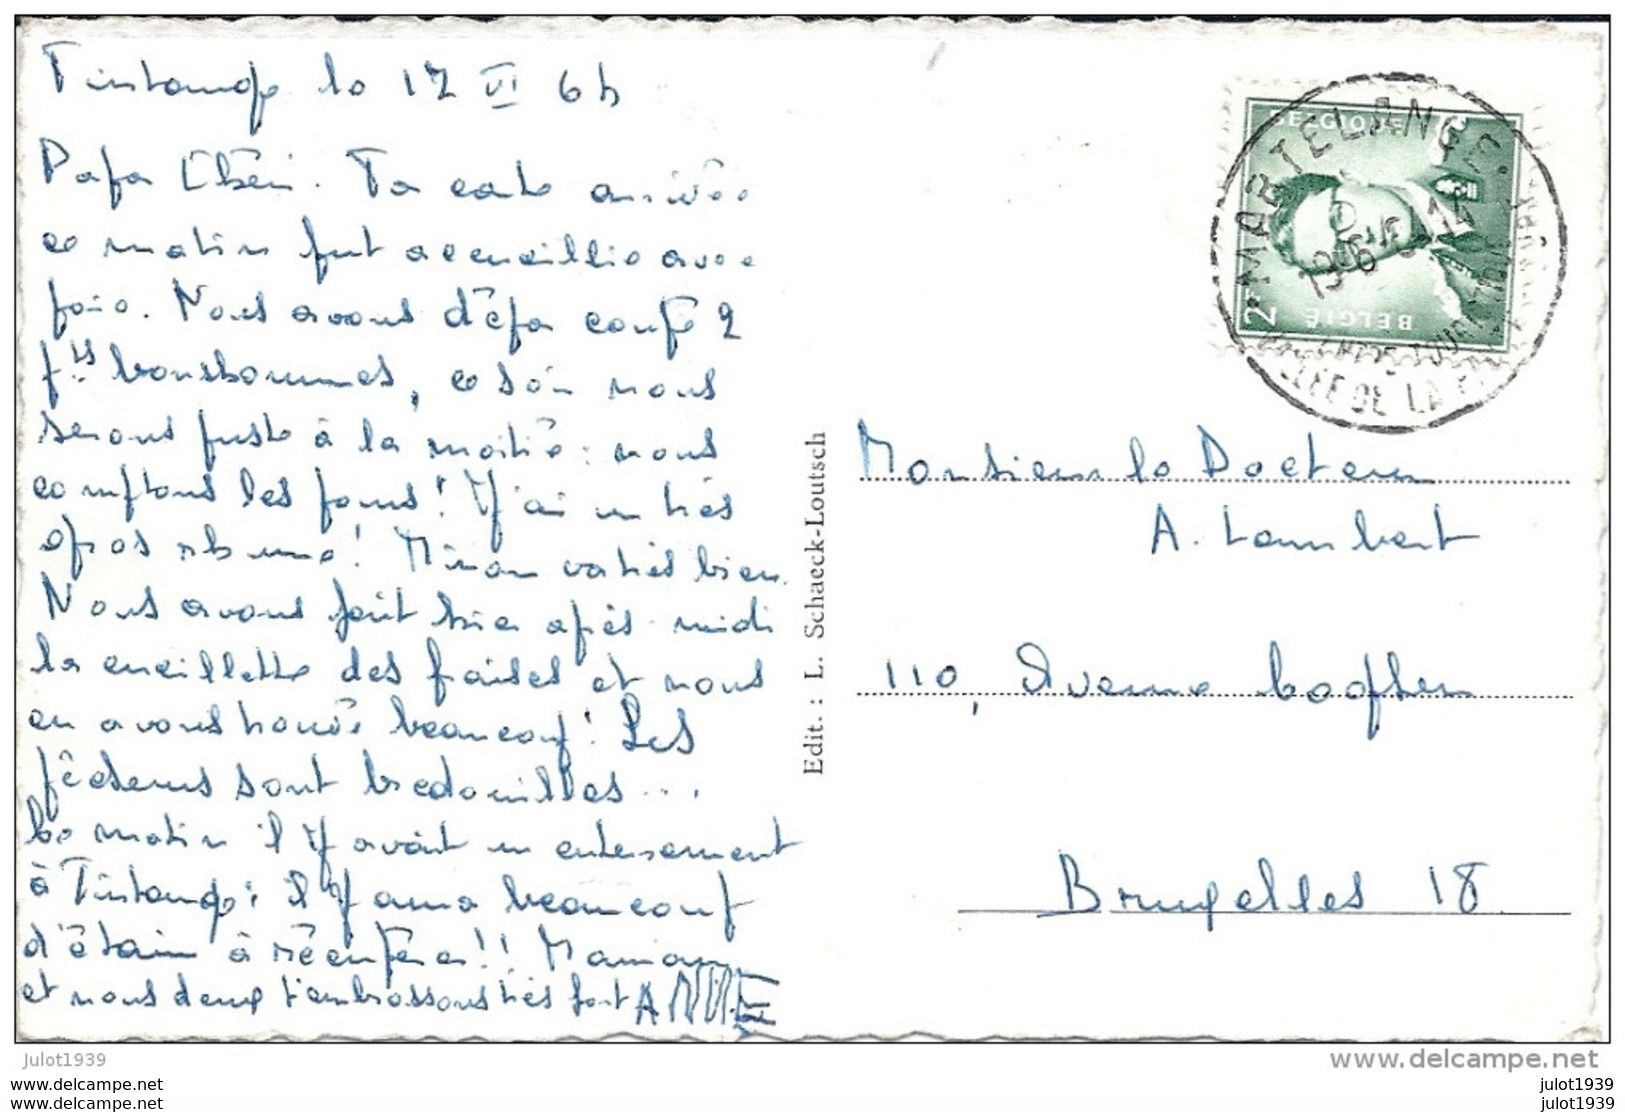 Tintange le 17 VI 64
Papa Chéri. Ta carte arrivée
ce matin fut accueillie avec
joie. Nous avons déjà coupé 2
bonshommes, ce soir nous
serons juste à la moitié : nous
comptons les jours ! J'ai un très
gros rhume ! Minou va très bien.
Nous avons fait hier après-midi
la cueillette des fraises et nous
en avons trouvé beaucoup ! Les
pêcheurs sont bredouilles ...
Ce matin il y avait un enterrement
à Tintange : il y aura beaucoup
d'étain à récupérer !! Maman
et nous deux t'embrassons très fort ANNE
Edit. : L. Schaeck-Loutsch
BELGIQUE
2F
BELGIË
MARTELANGE
19-6
14
DE LA
Monsieur le Docteur
A. Lambert
110, Avenue Coghen
Bruxelles 18
julot1939
www.delcampe.net
julot1939
www.delcampe.net
julot1939
www.delcampe.net
julot1939